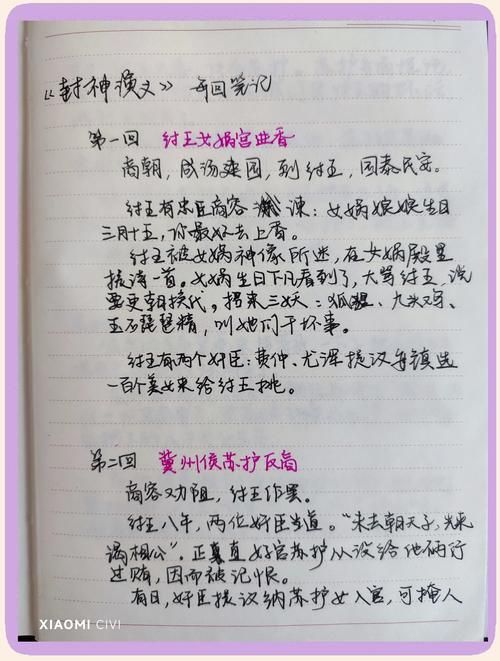 《封神演义》 每回笔记
第一回 纣王女娲宫进香
商朝，成汤建国，到纣王，国泰民安。
纣王有忠臣商容 谏：女娲娘娘生日
三月十五，你最好去上香。
纣王被女娲神像所迷，在女娲殿里
提诗一首。女娲生日下凡看到了，大骂纣王，说
要更朝换代。招来三妖：狐狸、九头鸡、
玉石琵琶精，叫她们干坏事。
纣王有两个奸臣：费仲、尤浑提议每镇选
一百个美女来给纣王挑。
第二回 冀州侯苏护反商
商容劝阻，纣王作罢。
纣王八年，两位奸臣当道。“未去朝天子，先来
谒相公”。正直好官苏护从没给他俩行
过贿，因而被记恨。
有日，奸臣提议纳苏护女入宫，可掩人
XIAOMI CIVI